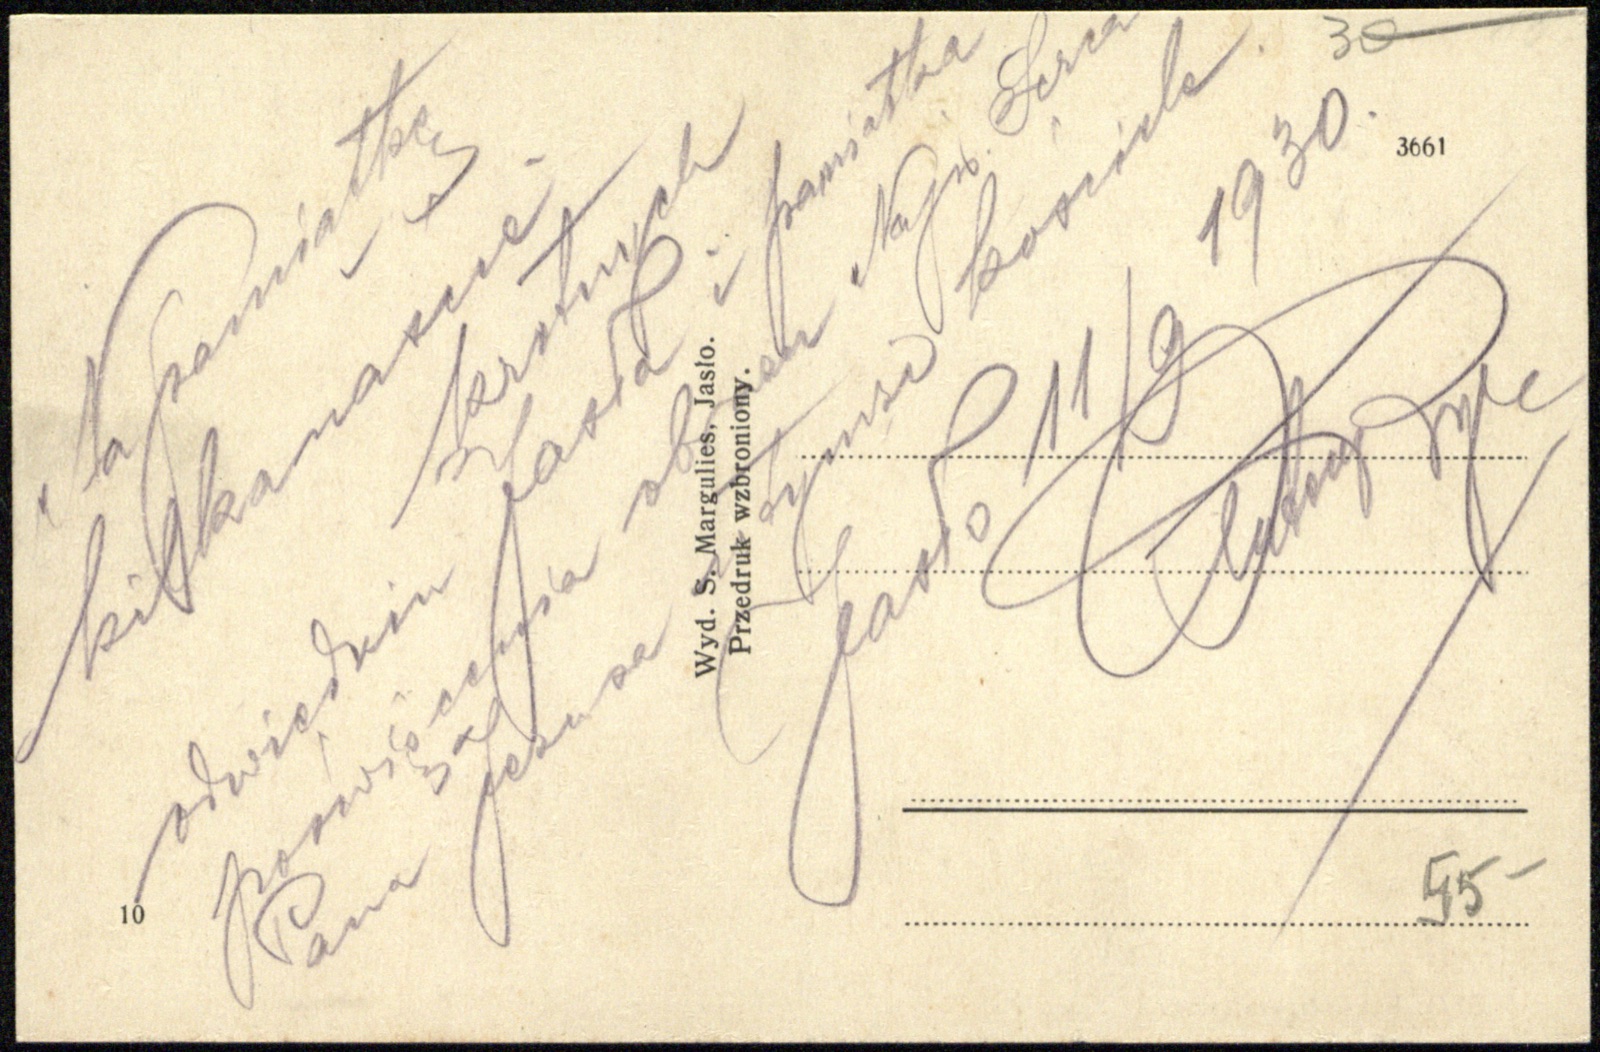 Na pamiątkę
kilkanaście
krotnych
odwiedzin Jasła i pamiątka
poświęcenia obrazu "Najś. Serca
Pana Jezusa w tymże kościele.
Jasło 11/9 1930.
30
3661
Wyd. S. Margulies, Jasło.
Przedruk wzbroniony.
10
55-